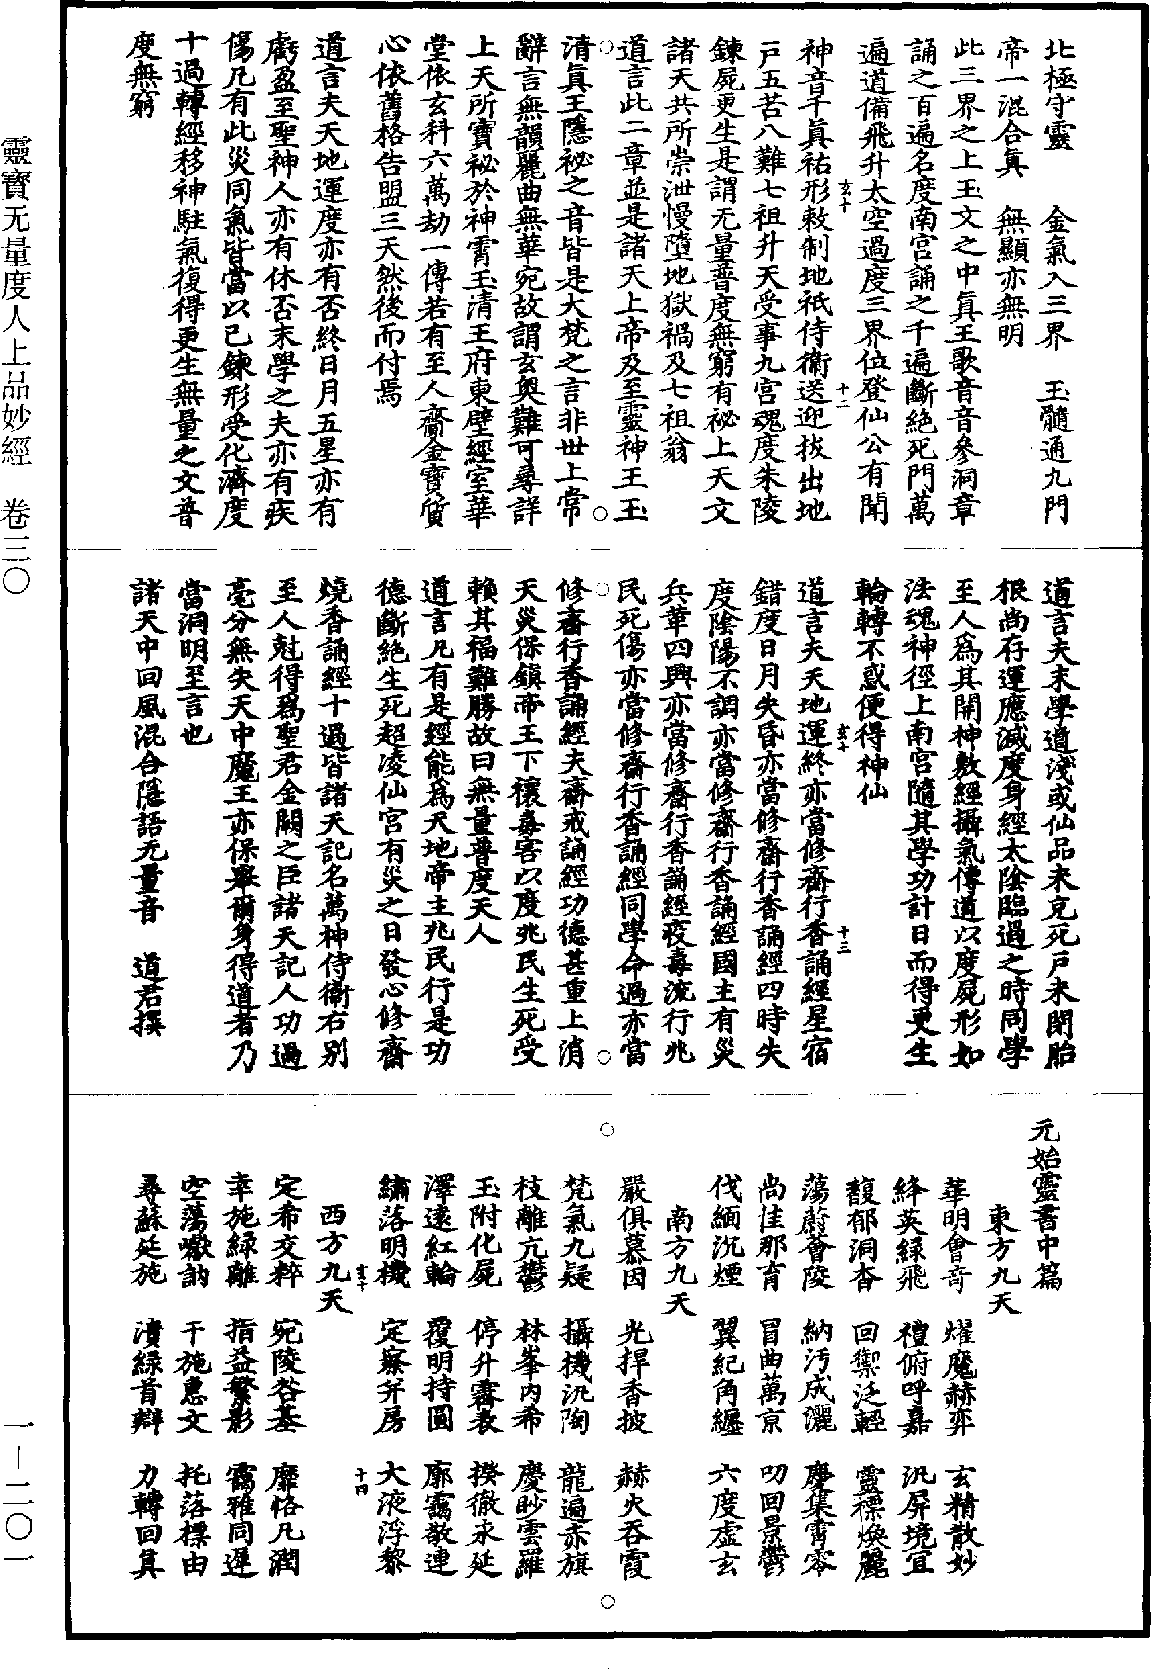 北極守靈　金氣入三界　玉髓通九門
帝一混合眞　無顯亦無明
此三界之上玉文之中眞王歌音音參洞章
誦之百遍名度南宮誦之千遍斷絕死門萬
遍道備飛升太空過度三界位登仙公有聞
神音千眞祐形敕制地祇侍衞送迎拔出地
戸五苦八難七祖升天受事九宮魂度朱陵
鍊屍更生是謂无量普度無窮有祕上天文
諸天共所崇泄慢墮地獄禍及七祖翁
道言此二章並是諸天上帝及至靈神王玉
清眞王隱祕之音皆是大梵之言非世上常
辭言無韻麗曲無華宛故謂玄奧難可尋詳
上天所寶祕於神霄玉清王府東壁經室華
堂依玄科六萬劫一傳若有至人齎金寶質
心依舊格告盟三天然後而付焉
道言夫天地運度亦有否終日月五星亦有
虧盈至聖神人亦有休否末學之夫亦有疾
傷凡有此災同氣皆當以已鍊形受化濟度
十過轉經移神駐氣復得更生無量之文普
度無窮
道言夫末學道淺或仙品未充死戸未閉胎
根尚存運應滅度身經太陰臨過之時同學
至人爲其開神敷經攝氣傳道以度屍形如
法魂神徑上南宮隨其學功計日而得更生
輪轉不惑便得神仙
道言夫天地運終亦當修齋行香誦經星宿
錯度日月失昏亦當修齋行香誦經四時失
度陰陽不調亦當修齋行香誦經國主有災
兵革四興亦當修齋行香誦經疫毒流行兆
民死傷亦當修齋行香誦經同學命過亦當
修齋行香誦經夫齋戒誦經功德甚重上消
天災保鎮帝王下禳毒害以度兆民生死受
賴其福難勝故曰無量普度天人
道言凡有是經能爲天地帝主兆民行是功
德斷絕生死超凌仙宮有災之日發心修齋
燒香誦經十過皆諸天記名萬神侍衞右別
至人尅得爲聖君金闕之臣諸天記人功過
毫分無失天中魔王亦保舉爾身得道者乃
當洞明至言也
諸天中回風混合隱語无量音　道君撰
元始靈書中篇
東方九天
華明會奇　燿魔赫弈　玄精散妙
絳英緑飛　禮俯呼嘉　汎屏境宜
馥郁洞杳　回禦泛輕　靈標煥麗
蕩蔚薈陵　納汚成灑　慶集霄零
尚佳那育　冒曲萬京　叨回景鬱
伐緬沉煙　翼紀角纏　六度虚玄
南方九天
嚴俱慕因　光捍香披　赫火吞霞
梵氣九疑　攝機汎陶　龍遍赤旗
枝離亢鬱　林峯内希　慶眇雲羅
玉附化屍　停升霫袁　揆徹永延
澤遠紅輪　覆明持圓　廓靄敬連
繡落明機　定察并房　大液浮黎
西方九天
定希交粹　宛陵咎基　靡恪凡潤
幸施緑離　指益繁影　靄雅同遲
空蕩巘訥　干施惠文　托落標由
尋蘇延施　漬緑首辯　力轉回真
玄十
十二
玄十
十三
玄十
十四
靈寶无量度人上品妙經　卷三〇
一—二〇一